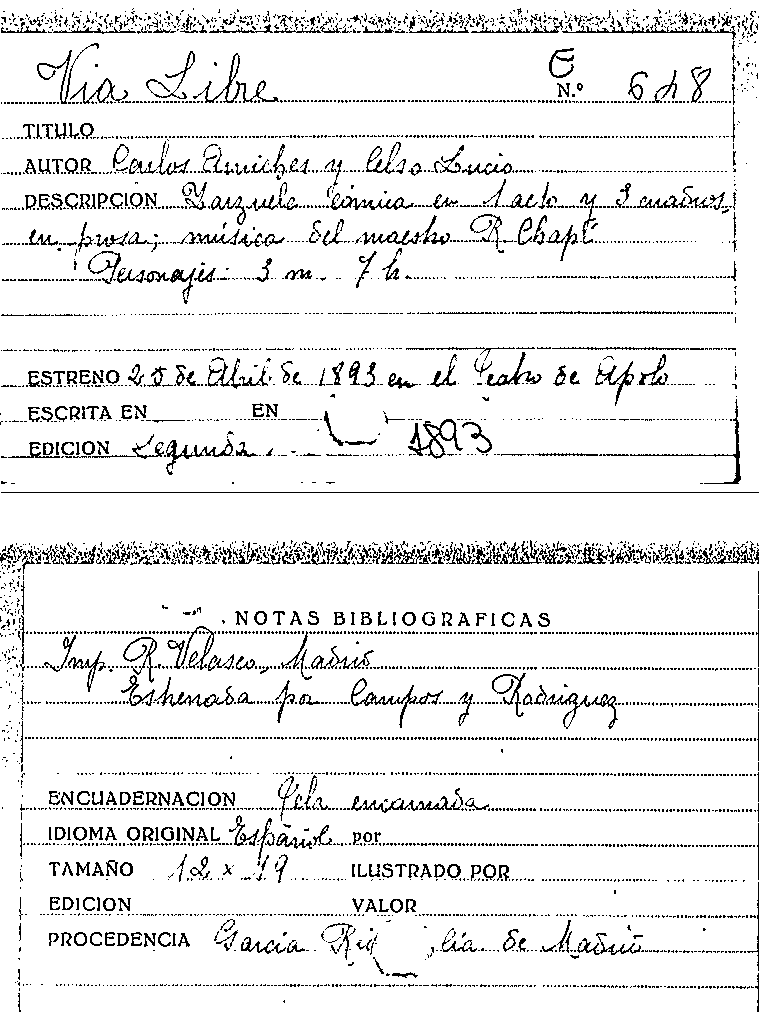 Via Libre
C
N.º 648
TITULO
AUTOR Carlos Arniches y Celso Lucio
DESCRIPCION Zarzuela cómica en 1 acto y 3 cuadros,
en prosa; música del maestro R. Chapí
Personajes: 3 m. 7 h.
ESTRENO 25 de Abril de 1893 en el Teatro de Apolo
ESCRITA EN EN
EDICION Segunda. 1893
NOTAS BIBLIOGRAFICAS
Imp. R. Velasco, Madrid
Estrenada por Campos y Rodriguez
ENCUADERNACION Tela encarnada
IDIOMA ORIGINAL Español por
TAMAÑO 12 x 19 ILUSTRADO POR
EDICION VALOR
PROCEDENCIA Garcia de Madrid